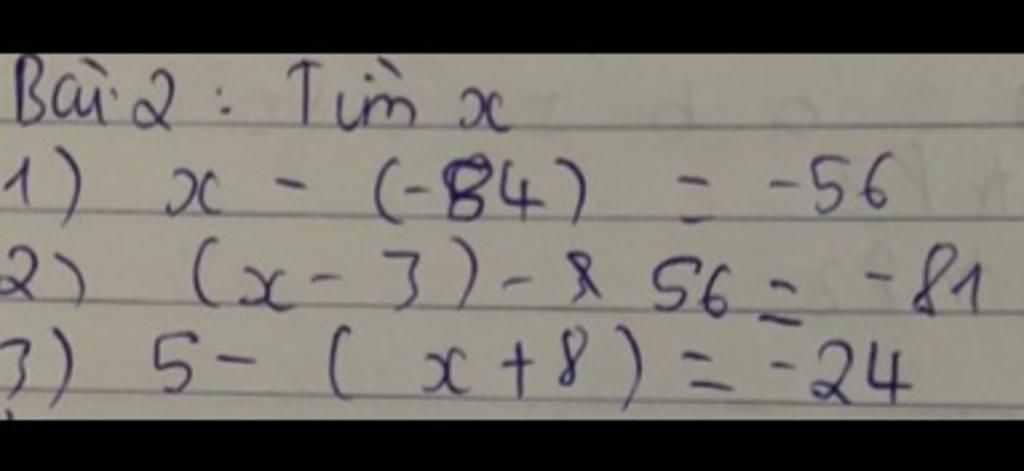 Bài 2 : Tìm x
1) x - (-84) = -56
2) (x - 3) - 56 = -81
3) 5 - ( x + 8 ) = -24